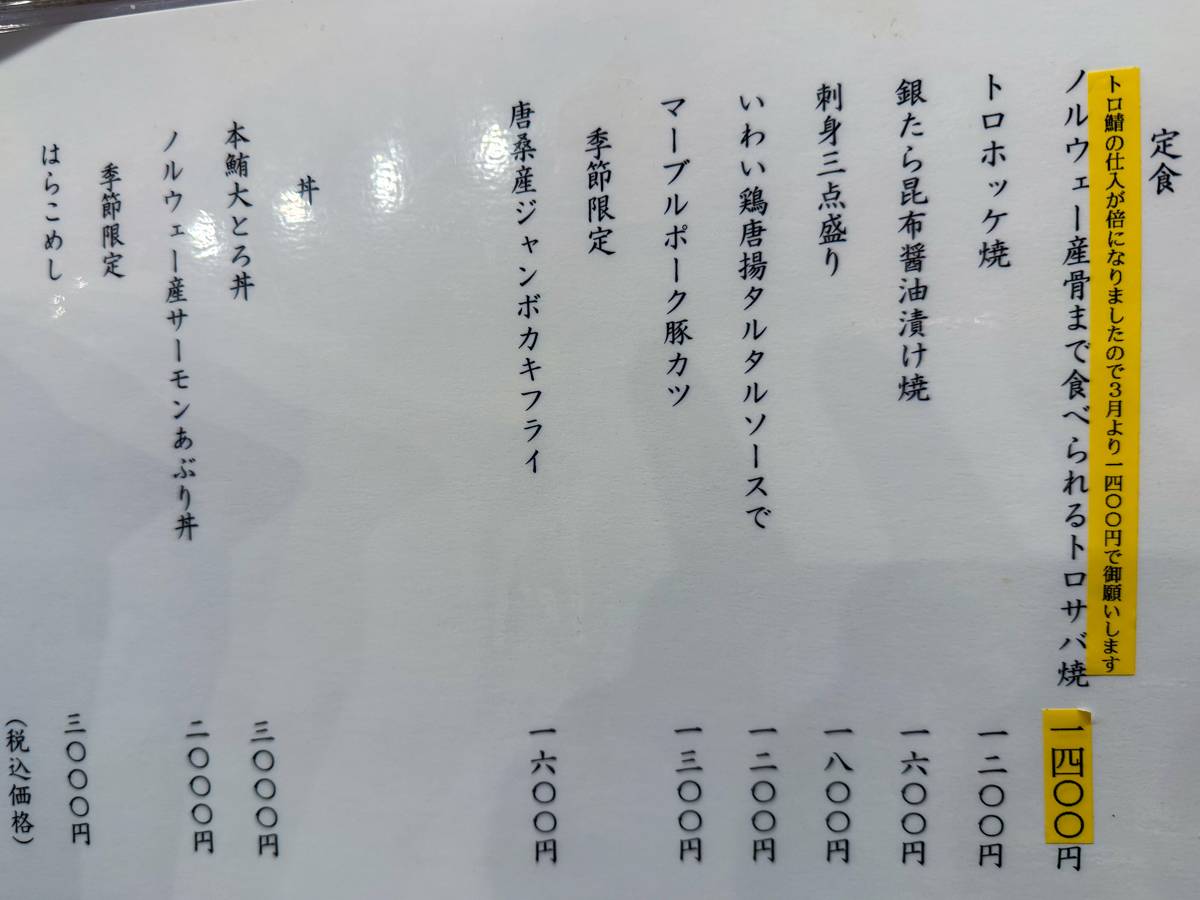 定食
トロ鯖の仕入が倍になりましたので３月より一四〇〇円で御願いします
ノルウェー産骨まで食べられるトロサバ焼 一四〇〇円
トロホッケ焼 一二〇〇円
銀たら昆布醤油漬け焼 一六〇〇円
刺身三点盛り 一八〇〇円
いわい鶏唐揚タルタルソースで 一二〇〇円
マーブルポーク豚カツ 一三〇〇円
季節限定
唐桑産ジャンボカキフライ 一六〇〇円
丼
本鮪大とろ丼 三〇〇〇円
ノルウェー産サーモンあぶり丼 二〇〇〇円
季節限定
はらこめし 三〇〇〇円
（税込価格）